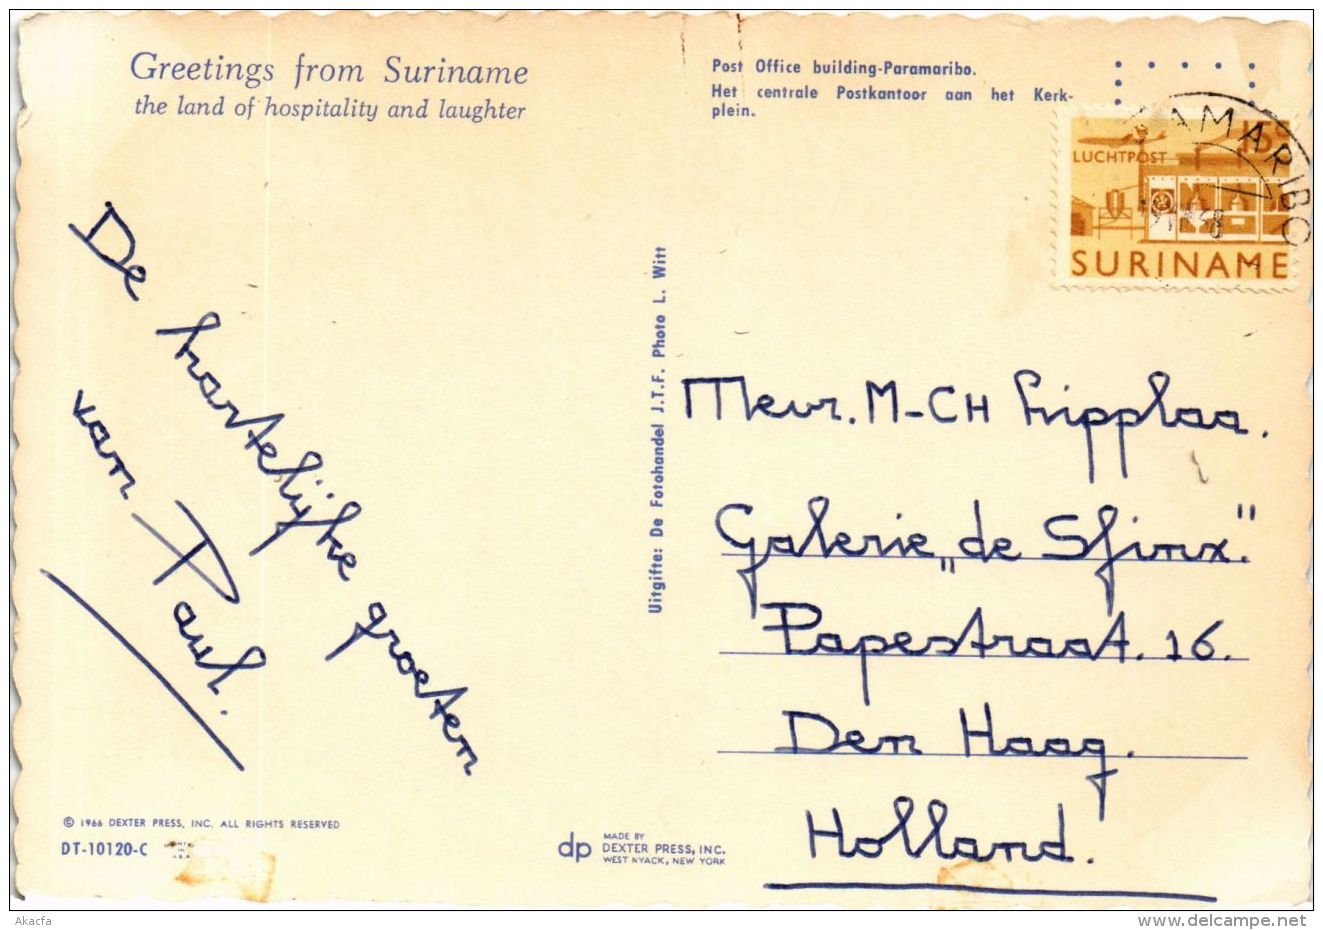 Greetings from Suriname
the land of hospitality and laughter
Post Office building-Paramaribo.
Het centrale Postkantoor aan het Kerk-
plein.
AMARIBO
15c
LUCHTPOST
SURINAME
De hartelijke groeten
van Paul.
Uitgifte: De Fotohandel J.T.F. Photo L. Witt
Mevr. M-CH Lipplaa.
Galerie „de Sfinx."
Papestraat. 16.
Den Haag.
Holland.
© 1966 DEXTER PRESS, INC. ALL RIGHTS RESERVED
DT-10120-C
dp
MADE BY
DEXTER PRESS, INC.
WEST NYACK, NEW YORK
Akacfa
www.delcampe.net